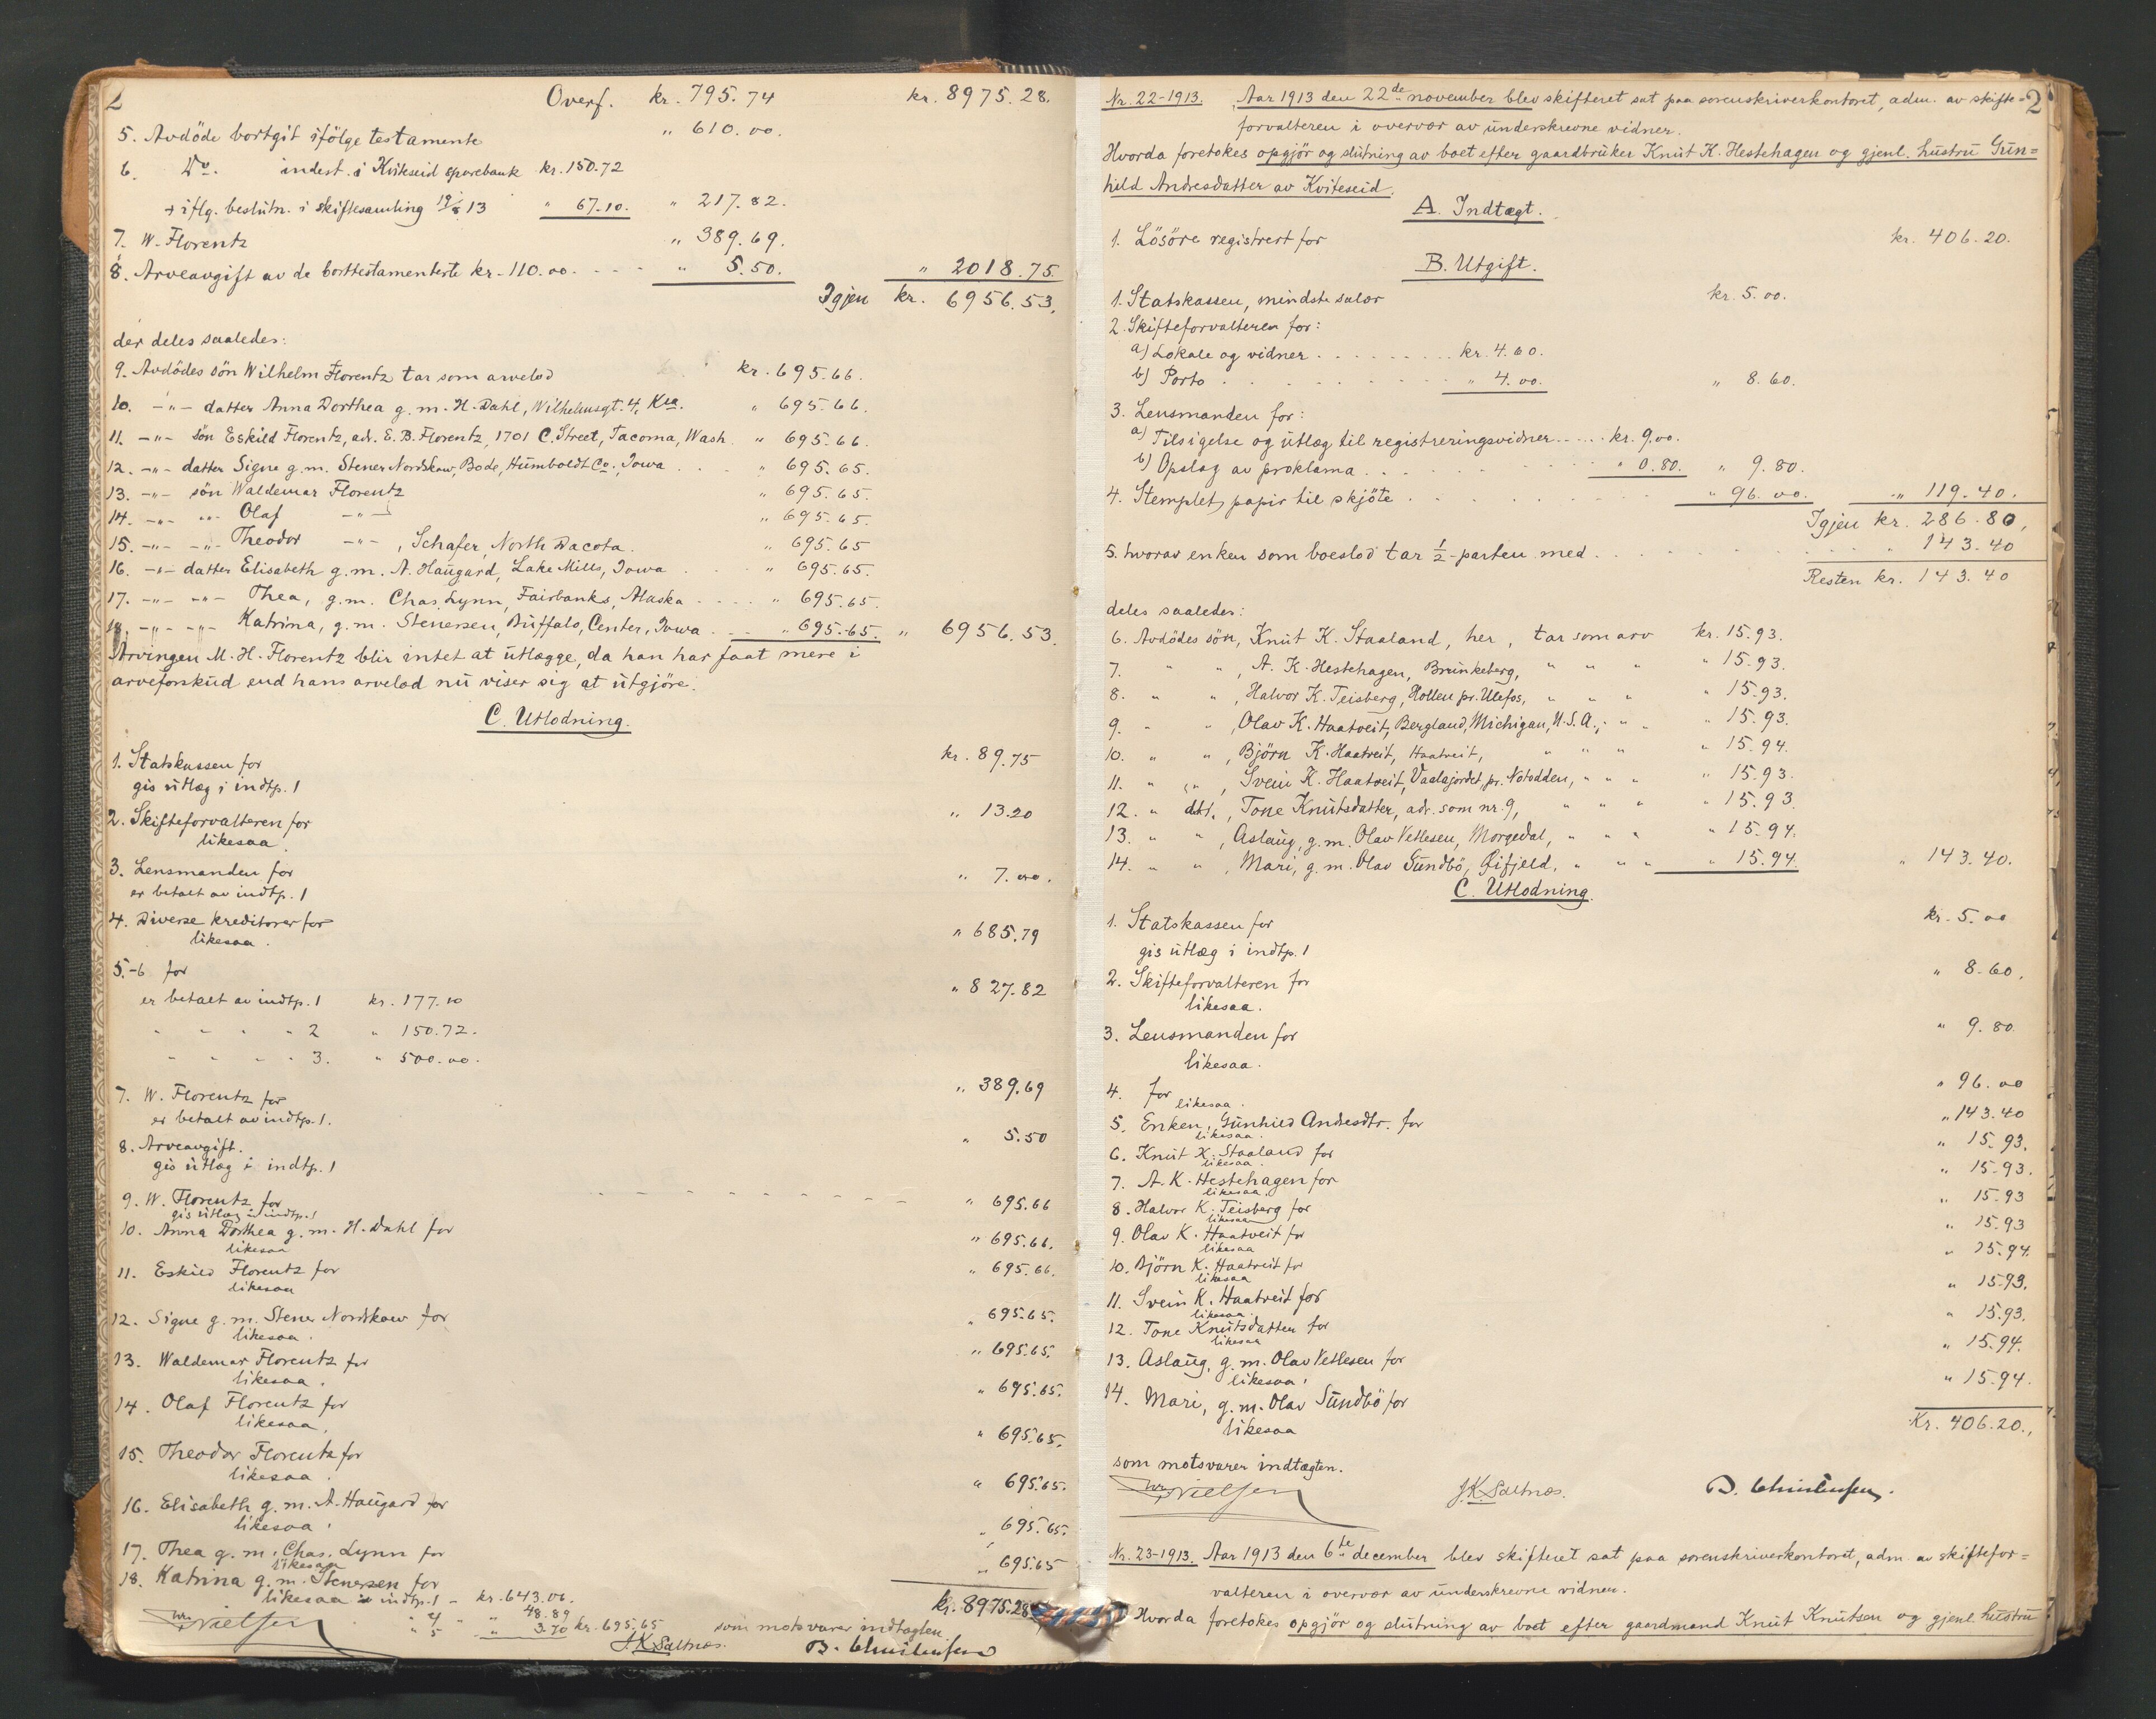 2
Overf. kr. 795.74 kr. 8975.28.
5. Avdöde bortgit ifölge testamente " 610.00.
6. Do. indest. i Kviteseid sparebank kr. 150.72
+ iflg. beslutn. i skiftesamling 19/8 13 " 67.10. " 217.82.
7. W. Florentz " 389.69.
8. Arveavgift av de borttestamenterte kr. 110.00. - - - " 5.50. " 2018.75.
Igjen kr. 6956.53.
der deles saaledes:
9. Avdödes sön Wilhelm Florentz tar som arvelod kr. 695.66.
10. -"- datter Anna Dorthea g. m. H. Dahl, Wilhelmsgt. 4, Kra. " 695.66.
11. -"- sön Eskild Florentz, adr. E. B. Florentz, 1701 C. Street, Tacoma, Wash. " 695.66.
12. -"- datter Signe g. m. Stener Nordskow, Bode, Humboldt Co., Iowa . . " 695.65.
13. -"- sön Waldemar Florentz " 695.65.
14. -"- -"- Olaf -"- " 695.65.
15. -"- -"- Theodor -"- , Schafer, North Dacota. " 695.65
16. -"- datter Elisabeth g. m. A. Haugard, Lake Mills, Iowa . . " 695.65.
17. -"- -"- Thea, g. m. Chas. Lynn, Fairbanks, Alaska - - - - " 695.65.
18. -"- -"- Katrina, g. m. Stenersen, Buffalo, Center, Iowa . - - " 695.65. " 6956.53.
Arvingen M. H. Florentz blir intet at utlægge, da han har faat mere i
arveforskud end hans arvelod nu viser sig at utgjöre.
C. Utlodning.
1. Statskassen for kr. 89.75
gis utlæg i indtp. 1
2. Skifteforvalteren for " 13.20
likesaa.
3. Lensmanden for " 7.00.
er betalt av indtp. 1
4. Diverse kreditorer for " 685.79
likesaa.
5.-6. for " 827.82
er betalt av indtp. 1 kr. 177.10
" " " " 2 " 150.72.
" " " " 3. " 500.00.
7. W. Florentz for " 389.69
er betalt av indtp. 1.
8. Arveavgift. " 5.50
gis utlæg i indtp. 1
9. W. Florentz for " 695.66
gis utlæg i indtp. 1
10. Anna Dorthea g. m. H. Dahl for " 695.66.
likesaa
11. Eskild Florentz for " 695.66.
likesaa
12. Signe g. m. Stener Nordskow for " 695.65.
likesaa.
13. Waldemar Florentz for " 695.65.
likesaa.
14. Olaf Florentz for " 695.65.
likesaa.
15. Theodor Florentz for " 695.65.
likesaa.
16. Elisabeth g. m. A. Haugard for " 695.65.
likesaa.
17. Thea g. m. Chas. Lynn for " 695.65.
likesaa
18. Katrina g. m. Stenersen for " 695.65
likesaa i indtp. 1 - kr. 643.06. kr. 8975.28
" 4 " 48.89
" 5 " 3.70 kr. 695.65 som motsvarer indtægten.
Wr. Nielsen J. K. Saltnes. B. Christensen
2
Nr. 22-1913. Aar 1913 den 22de november blev skifteret sat paa sorenskriverkontoret, adm. av skifte-
forvalteren i overvær av underskrevne vidner.
Hvorda foretokes opgjör og slutning av boet efter gaardbruker Knut K. Hestehagen og gjenl. hustru Gun=
hild Andresdatter av Kviteseid.
A. Indtægt.
1. Lösöre registrert for kr. 406.20.
B. Utgift.
1. Statskassen, mindste salær kr. 5.00.
2. Skifteforvalteren for:
a) Lokale og vidner . . . . . . . . . kr. 4.60.
b) Porto . . . . . . . . . . " 4.00. " 8.60.
3. Lensmanden for:
a) Tilsigelse og utlæg til registreringsvidner - - - - - kr. 9.00.
b) Opslag av proklama . . . . . . . . " 0.80. " 9.80.
4. Stemplet papir til skjöte . . . . . . . . " 96.00. " 119.40.
Igjen kr. 286.80,
5. hvorav enken som boeslod tar 1/2-parten med . . . . . . . . " 143.40
Resten kr. 143.40
deles saaledes:
6. Avdödes sön, Knut K. Staaland, her, tar som arv kr. 15.93.
7. " " , A. K. Hestehagen, Brunkeberg, " " " " 15.93.
8. " " , Halvor K. Teisberg, Hollen pr. Ulefos, " " " " 15.93.
9. " " , Olav K. Haatveit, Bergland, Michigan, U.S.A., " " " 15.93.
10. " " , Björn K. Haatveit, Haatveit, " " " " 15.94.
11. " " , Svein K. Haatveit, Vaalajordet, pr. Notodden, " " " " 15.93.
12. " dtr. , Tone Knutsdatter, adr. som nr. 9, " " " " 15.93.
13. " " , Aslaug, g. m. Olav Vetlesen, Morgedal, " " " " 15.94.
14. " " , Mari, g. m. Olav Sundbö, Eifjeld, " " " " 15.94. " 143.40.
C. Utlodning.
1. Statskassen for kr. 5.00
gis utlæg i indtp. 1
2. Skifteforvalteren for " 8.60.
likesaa.
3. Lensmanden for " 9.80.
likesaa.
4. for " 96.00
likesaa.
5. Enken, Gunhild Andresdtr. for " 143.40
likesaa.
6. Knut K. Staaland for " 15.93.
likesaa.
7. A. K. Hestehagen for " 15.93.
likesaa.
8. Halvor K. Teisberg for " 15.93
likesaa
9. Olav K. Haatveit for " 15.93
likesaa
10. Björn K. Haatveit for " 15.94.
likesaa
11. Svein K. Haatveit for " 15.93.
likesaa.
12. Tone Knutsdatter for " 15.93.
likesaa
13. Aslaug, g. m. Olav Vetlesen for " 15.94.
likesaa.
14. Mari, g. m. Olav Sundbö for " 15.94.
likesaa Kr. 406.20.,
som motsvarer indtægten.
Wr. Nielsen J. K. Saltnes. B. Christensen.
Nr. 23-1913. Aar 1913 den 6te december blev skifteret sat paa sorenskriverkontoret, adm. av skiftefor=
valteren i overvær av underskrevne vidner.
Hvorda foretokes opgjör og slutning av boet efter gaardmand Knut Knutsen og gjenl. hustru